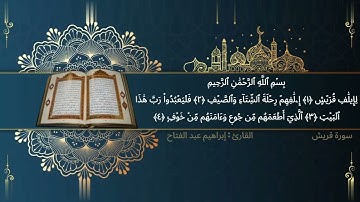 بِسْمِ ٱللَّهِ ٱلرَّحْمَٰنِ ٱلرَّحِيمِ
لِإِيلَٰفِ قُرَيْشٍ ﴿١﴾ إِۦلَٰفِهِمْ رِحْلَةَ ٱلشِّتَآءِ وَٱلصَّيْفِ ﴿٢﴾ فَلْيَعْبُدُوا۟ رَبَّ هَٰذَا
ٱلْبَيْتِ ﴿٣﴾ ٱلَّذِىٓ أَطْعَمَهُم مِّن جُوعٍ وَءَامَنَهُم مِّنْ خَوْفٍۭ ﴿٤﴾
سورة قريش القارئ : إبراهيم عبد الفتاح